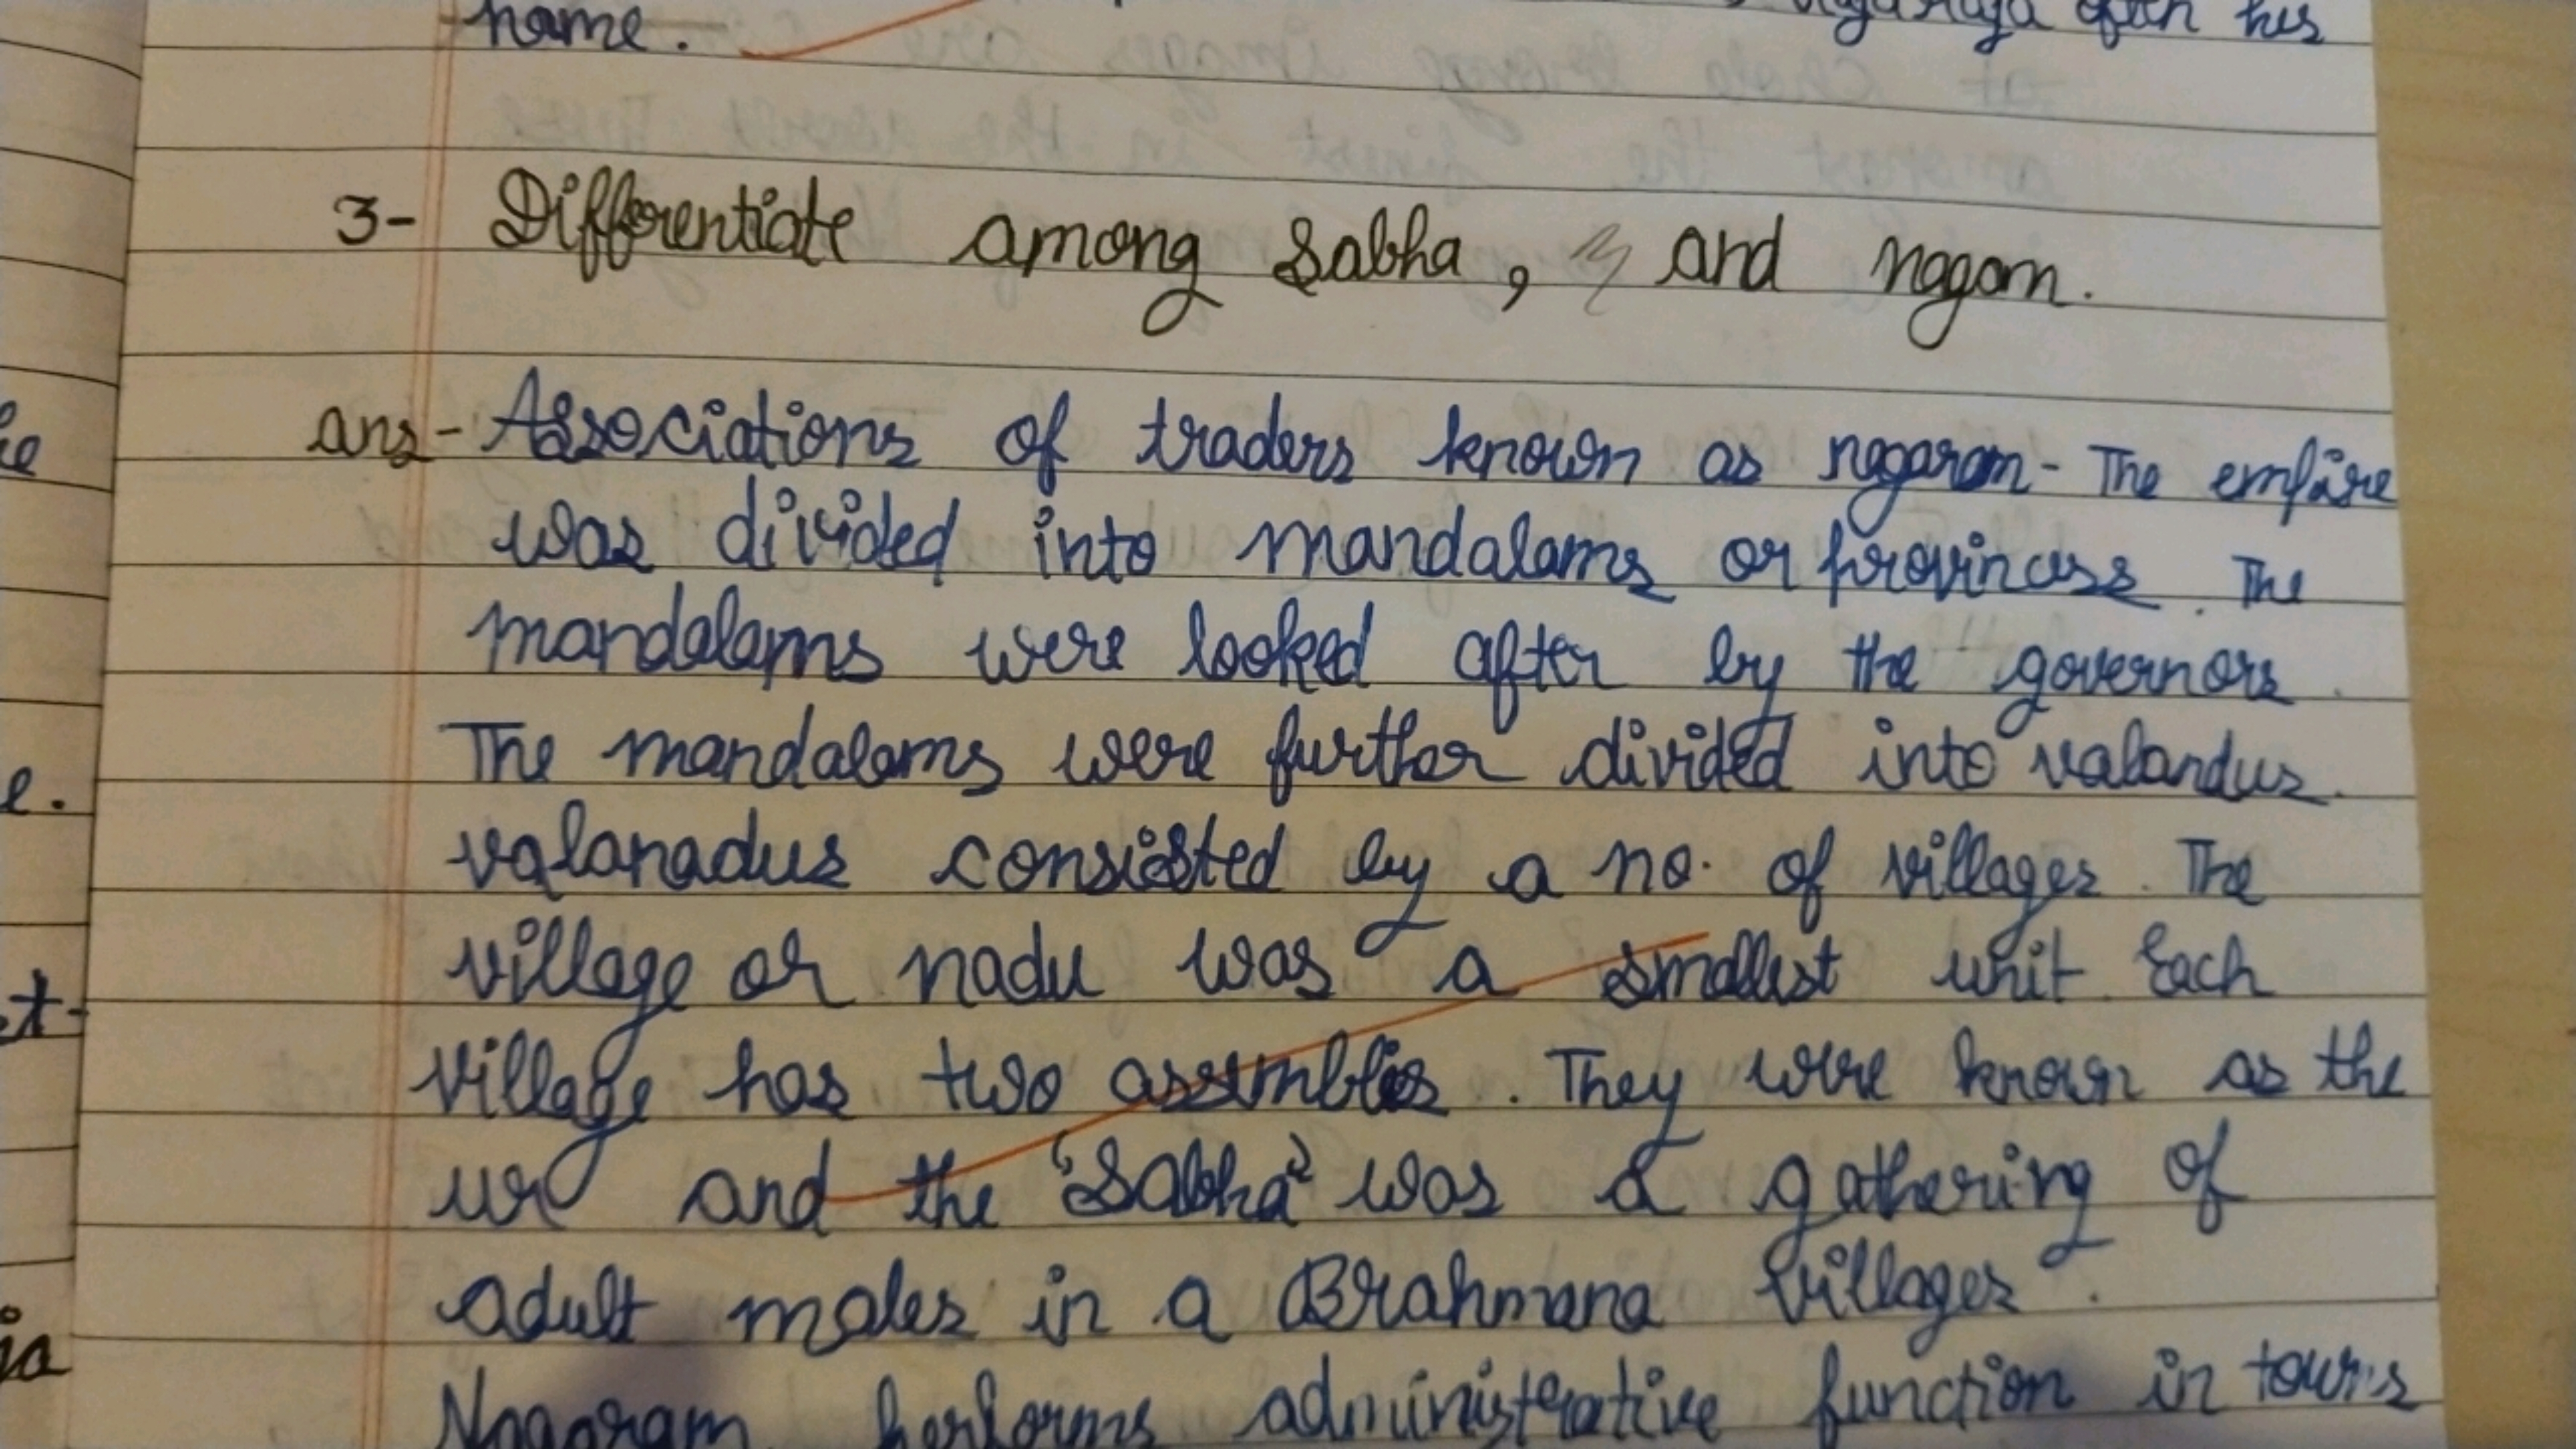 name. Nagaraja after his
3- Differentiate among Sabha, and nagam.
ans- Associations of traders known as nagaram - The empire
was divided into mandalams or provincess. The
mandalams were looked after by the governors.
The mandalams were further divided into valandus.
valanadus consisted by a no. of villages. The
village or nadu was a smallest unit. Each
village has two assemblies. They were known as the
ur and the 'Sabha' was a gathering of
adult males in a Brahmana Villages.
Nagaram performs administrative function in towns
ie
e.
t-
ja